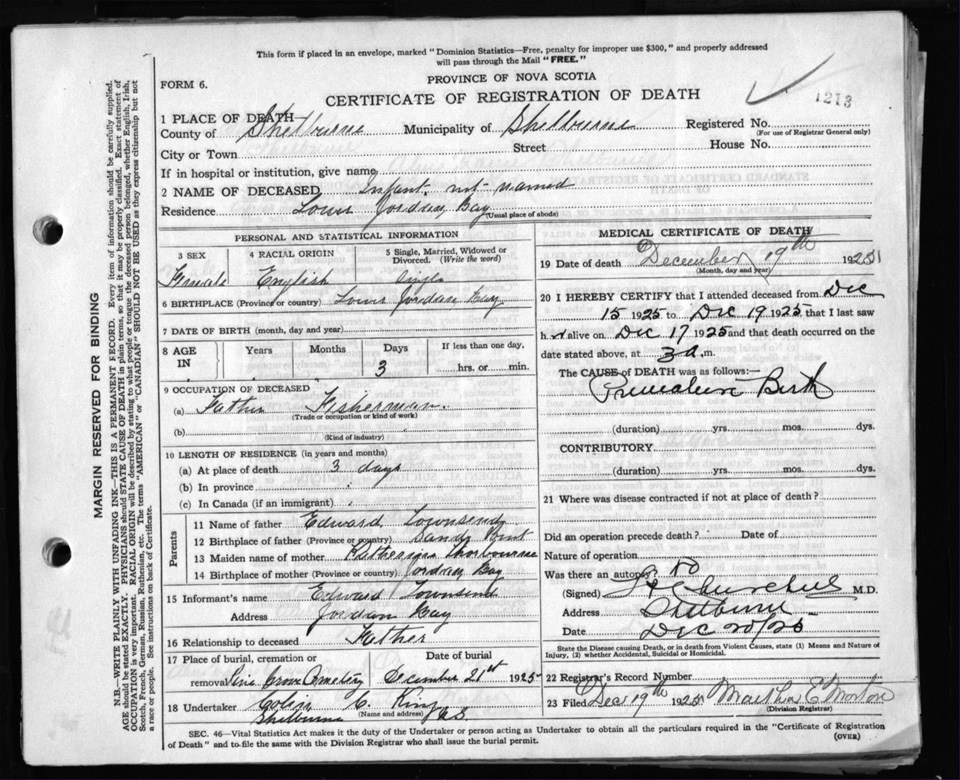 This form if placed in an envelope, marked "Dominion Statistics—Free, penalty for improper use $300," and properly addressed
will pass through the Mail "FREE."
FORM 6.
PROVINCE OF NOVA SCOTIA
CERTIFICATE OF REGISTRATION OF DEATH
1213
1 PLACE OF DEATH
County of Shelburne Municipality of Shelburne Registered No.
(For use of Registrar General only)
City or Town Street House No.
If in hospital or institution, give name
2 NAME OF DECEASED Infant. not named
Residence Jordan Bay (Usual place of abode)
PERSONAL AND STATISTICAL INFORMATION
3 SEX 4 RACIAL ORIGIN 5 Single, Married, Widowed or Divorced. (Write the word)
Female English Single
6 BIRTHPLACE (Province or country) Jordan Bay
7 DATE OF BIRTH (month, day and year)
8 AGE IN Years Months Days If less than one day,
3 hrs. or min.
9 OCCUPATION OF DECEASED
(a) Father Fisherman.
(Trade or occupation or kind of work)
(b)
(Kind of industry)
10 LENGTH OF RESIDENCE (in years and months)
(a) At place of death 3 days
(b) In province
(c) In Canada (if an immigrant)
Parents
11 Name of father Edward Townsend
12 Birthplace of father (Province or country) Sandy Point
13 Maiden name of mother Thorbourne
14 Birthplace of mother (Province or country) Jordan Bay
15 Informant's name Edward Townsend
Address Jordan Bay
16 Relationship to deceased Father
17 Place of burial, cremation or Date of burial
removal Pine Grove Cemetery December 21st 1925
18 Undertaker Colin C. King
Shelburne (Name and address) N.S.
MEDICAL CERTIFICATE OF DEATH
19 Date of death December 19th 1925
(Month, day and year)
20 I HEREBY CERTIFY that I attended deceased from Dec
15 1925 to Dec 19 1925, that I last saw
h alive on Dec 17 1925 and that death occurred on
date stated above, at 3 a.m.
The CAUSE of DEATH was as follows:—
Premature Birth
(duration) yrs. mos. dys.
CONTRIBUTORY
(duration) yrs. mos. dys.
21 Where was disease contracted if not at place of death?
Did an operation precede death? Date of
Nature of operation
Was there an autopsy? No
(Signed) Churchill M.D.
Address Shelburne
Date Dec 20/25
State the Disease causing Death, or in death from Violent Causes, state (1) Means and Nature of
Injury, (2) whether Accidental, Suicidal or Homicidal.
22 Registrar's Record Number
23 Filed Dec 19th 1925 Martha E Morton
(Division Registrar)
SEC. 46—Vital Statistics Act makes it the duty of the Undertaker or person acting as Undertaker to obtain all the particulars required in the "Certificate of Registration
of Death" and to file the same with the Division Registrar who shall issue the burial permit. (OVER)
MARGIN RESERVED FOR BINDING
N.B.—WRITE PLAINLY WITH UNFADING INK—THIS IS A PERMANENT RECORD. Every item of information should be carefully supplied.
AGE should be stated EXACTLY. PHYSICIANS should STATE CAUSE OF DEATH in plain terms, so that it may be properly classified. Exact statement of
OCCUPATION is very important. RACIAL ORIGIN will be described by stating to what people or tongue the deceased person belonged, whether English, Irish,
Scotch, French, German, Russian, Ruthenian, etc. The terms "AMERICAN" or "CANADIAN" SHOULD NOT BE USED as they express citizenship but not
a race or people. See instructions on back of Certificate.